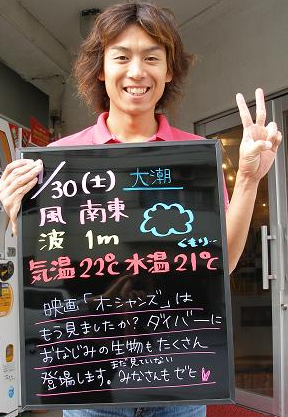 1/30(土) 大潮
風 南東
波 1m
くもり…
気温22℃ 水温21℃
映画「オーシャンズ」は
もう見ましたか？ダイバーに
おなじみの生物もたくさん
登場します。まだ見ていない
みなさんもぜひ♥